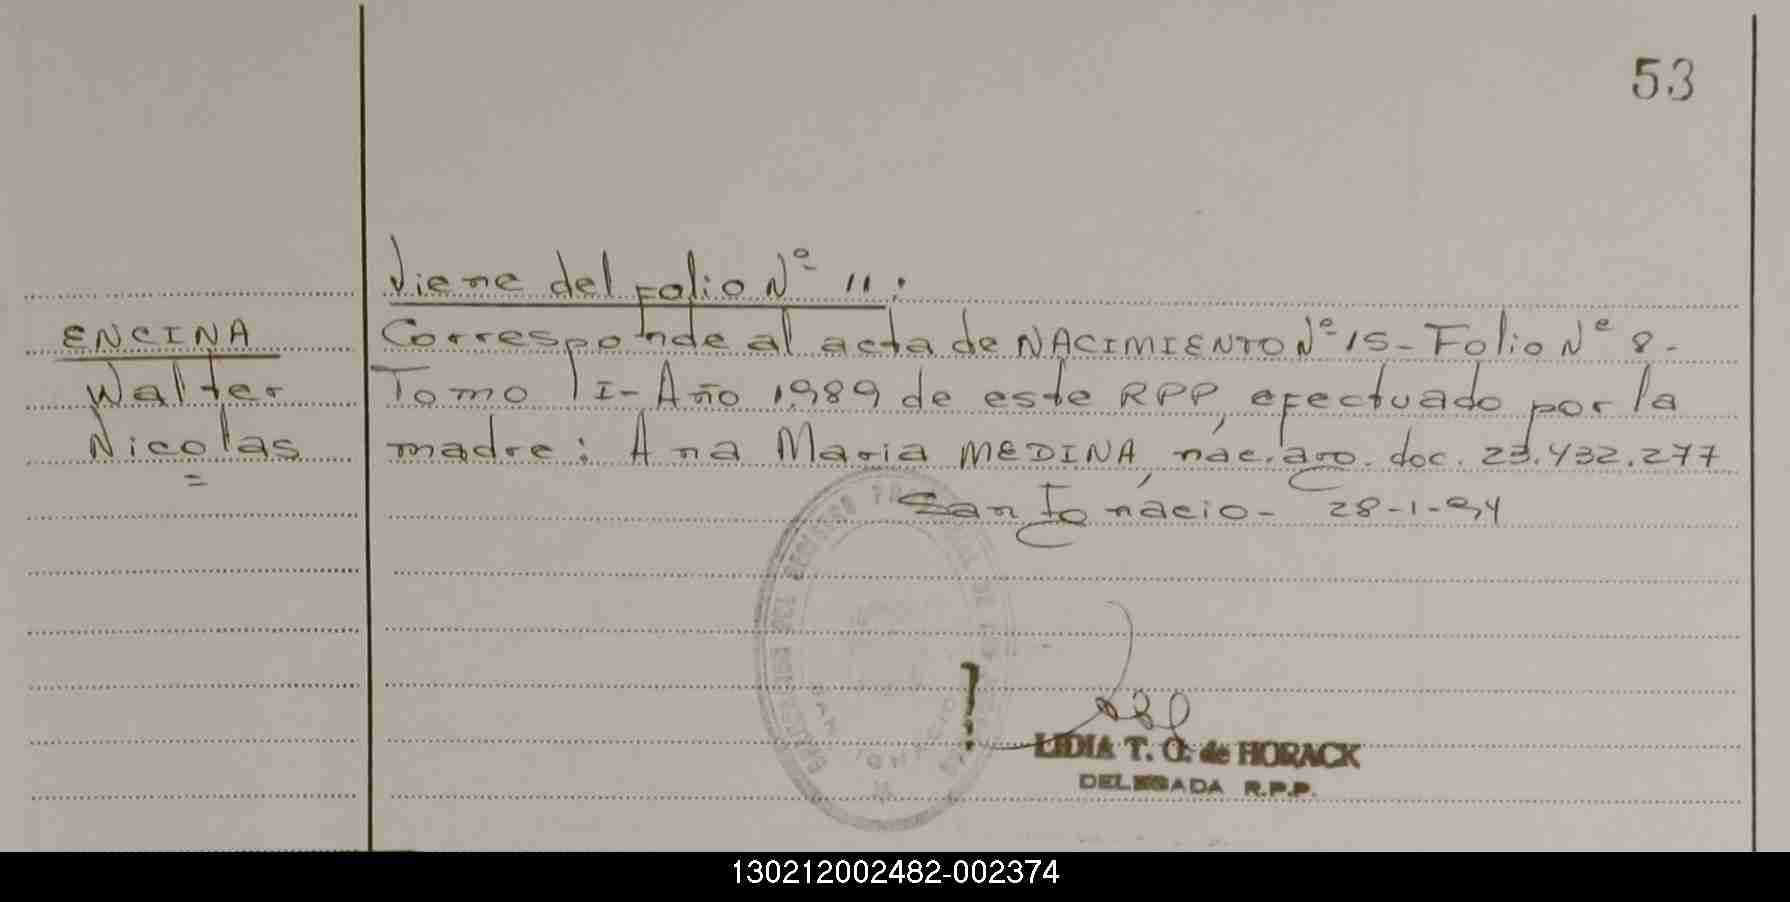 53
Viene del Folio Nº 11:
ENCINA
Walter
Nicolas
Corresponde al acta de NACIMIENTO Nº 15- Folio Nº 8-
Tomo II- Año 1989 de este RPP, efectuado por la
madre: Ana Maria MEDINA, nac. arg. doc. 23.432.277
San Ignacio- 28-1-94
SAN IGNACIO
LIDIA T. O. de HORACK
DELEGADA R.P.P.
130212002482-002374